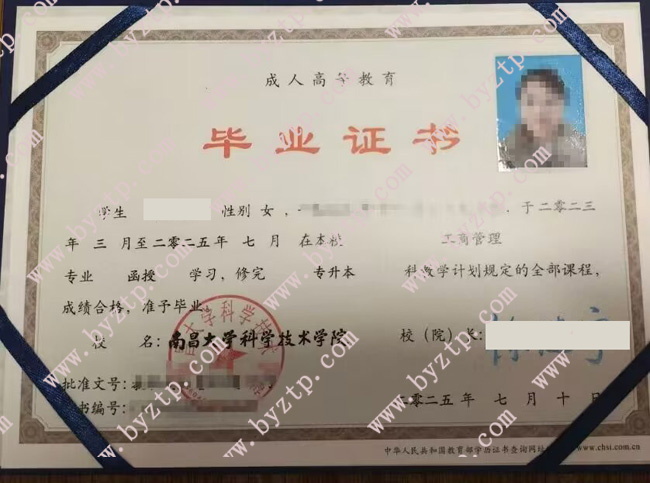 成人高等教育
毕业证书
学生 性别 女， ，于二〇二三
年 三 月至二〇二五年 七 月 在本校 工商管理
专业 函授 学习，修完 专升本 科教学计划规定的全部课程，
成绩合格，准予毕业。
校 名：南昌大学科学技术学院 校（院）长：
批准文号：
证书编号： 二〇二五年 七 月 十 日
中华人民共和国教育部学历证书查询网址：www.chsi.com.cn
www.byztp.com